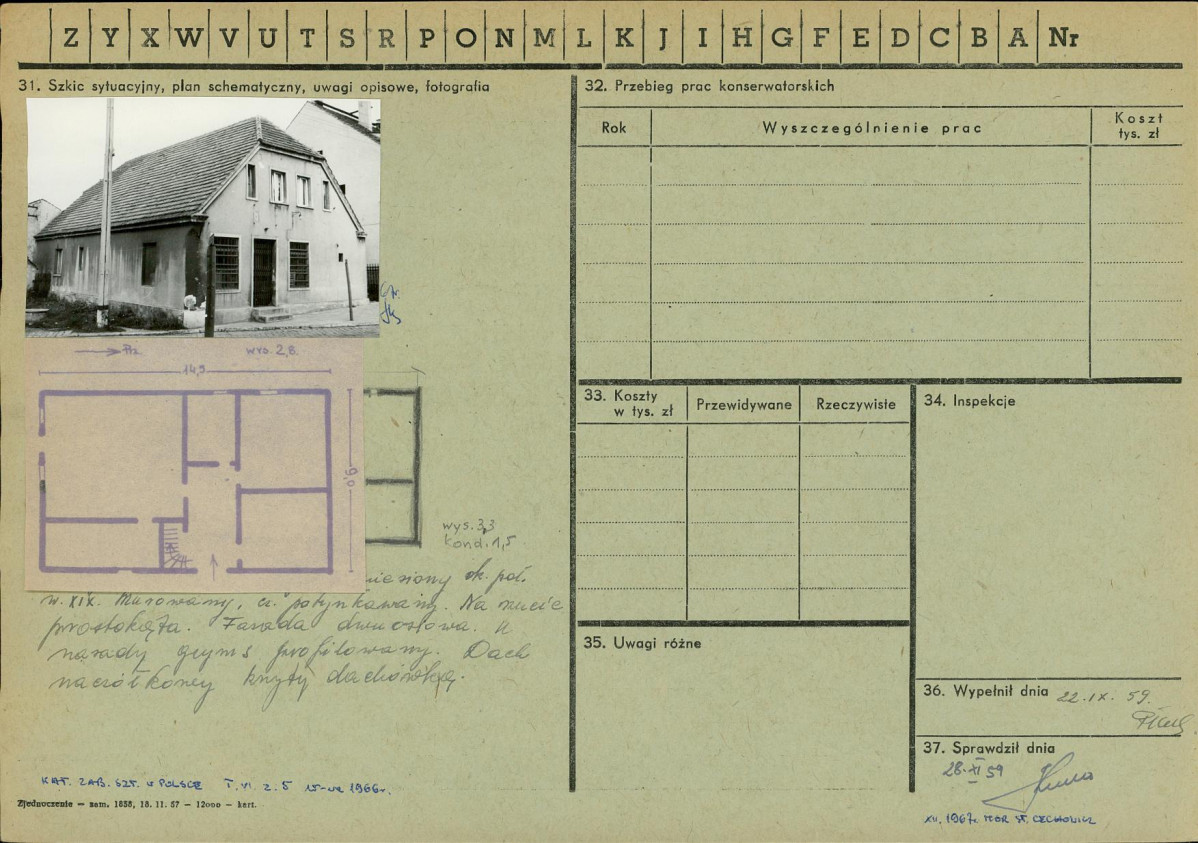 Z Y X W V U T S R P O N M L K J I H G F E D C B A Nr
31. Szkic sytuacyjny, plan schematyczny, uwagi opisowe, fotografia
wys. 2,8.
14,5
9,0
wys. 3,3
kond. 1,5
niesiony ok. poł.
w. XIX. Murowany, cz. potynkowany. Na rzucie
prostokąta. Fasada dwuosiowa. U
nasady gzyms profilowany. Dach
naczółkowy kryty dachówką.
KAT. ZAB. SZT. w POLSCE T. VI z. 5 W-wa 1966r.
Zjednoczenie — zam. 1838, 18. 11. 57 — 12000 — kart.
32. Przebieg prac konserwatorskich
Rok Wyszczególnienie prac Koszt tys. zł
33. Koszty w tys. zł Przewidywane Rzeczywiste
34. Inspekcje
35. Uwagi różne
36. Wypełnił dnia 22.IX.59.
37. Sprawdził dnia
28.XI 59
XII. 1967r. MGR ST. CECHOWICZ